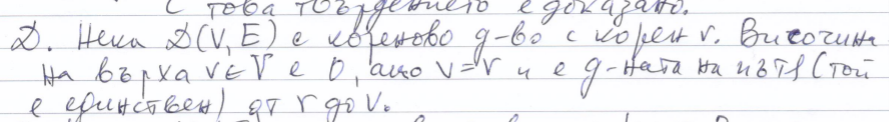 с това твърдението е доказано.
Д. Нека D(V, E) е кореново д-во с корен r. Височина
на върха v ∈ V е 0, ако v = r и е д-ната на пътя (той
е единствен) от r до v.